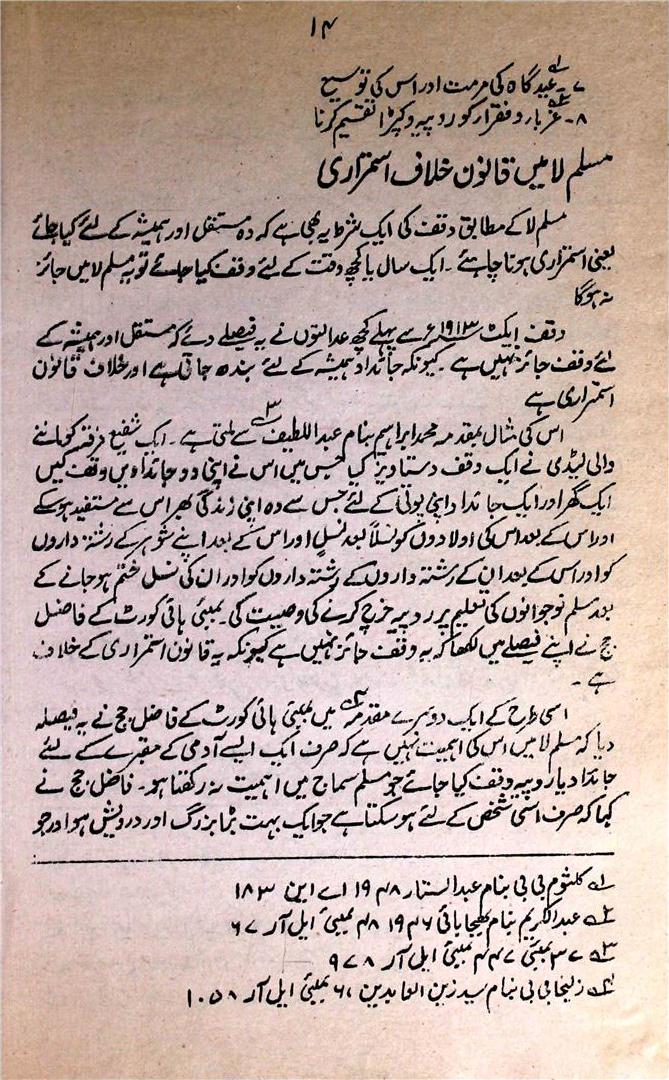 ۱۴
۷۔ عیدگاہ کی مرمت اور اس کی توسیع ۱؎
۸۔ غربار و فقرار کو روپیہ و کپڑا تقسیم کرنا ۲؎
مسلم لا میں قانون خلاف استمراری
مسلم لا کے مطابق وقف کی ایک شرط یہ بھی ہے کہ وہ مستقل اور ہمیشہ کے لئے کیا جائے
یعنی استمراری ہونا چاہئے ۔ ایک سال یا کچھ وقت کے لئے وقف کیا جائے تو یہ مسلم لا میں جائز
نہ ہوگا
وقف ایکٹ ۱۹۱۳ء سے پہلے کچھ عدالتوں نے یہ فیصلے دئے کہ مستقل اور ہمیشہ کے
لئے وقف جائز نہیں ہے ۔ کیونکہ جائداد ہمیشہ کے لئے بندھ جاتی ہے اور خلاف قانون
استمراری ہے
اس کی مثال بمقدمہ محمد ابراہیم بنام عبداللطیف ۳؎ سے ملتی ہے ۔ ایک شفیع فرقہ کو ماننے
والی لیڈی نے ایک وقف دستاویز کیا جس میں اس نے اپنی دو جائدادیں وقف کیں
ایک گھر اور ایک جائداد اپنی پوتی کے لئے جس سے وہ اپنی زندگی بھر اس سے مستفید ہو سکے
اور اس کے بعد اس کی اولادوں کو نسلاً بعد نسل اور اس کے بعد اپنے شوہر کے رشتہ داروں
کو اور اس کے بعد ان کے رشتہ داروں کے رشتہ داروں کو اور ان کی نسل ختم ہو جانے کے
بعد مسلم نوجوانوں کی تعلیم پر روپیہ خرچ کرنے کی وصیت کی ۔ بمبئی ہائی کورٹ کے فاضل
جج نے اپنے فیصلے میں لکھا کہ یہ وقف جائز نہیں ہے کیونکہ یہ قانون استمراری کے خلاف
ہے ۔
اسی طرح کے ایک دوسرے مقدمہ ۴؎ میں بمبئی ہائی کورٹ کے فاضل جج نے یہ فیصلہ
دیا کہ مسلم لا میں اس کی اہمیت نہیں ہے کہ صرف ایک ایسے آدمی کے مقبرے کے لئے
جائداد یا روپیہ وقف کیا جائے جو مسلم سماج میں اہمیت نہ رکھتا ہو ۔ فاضل جج نے
کہا کہ صرف اسی شخص کے لئے ہو سکتا ہے جو ایک بہت بڑا بزرگ اور درویش ہو اور جو
۱؎ کلثوم بی بی بنام عبدالستار ۱۹۴۸ اے این ۱۸۳
۲؎ عبدالکریم بنام بھیجابائی ۱۹۴۶ ۴۸ بمبئی ایل آر ۶۷
۳؎ ۳۷ بمبئی ۴۴۷ بمبئی ایل آر ۹۷۸
۴؎ زلیخا بی بی بنام سید زین العابدین ۶ بمبئی ایل آر ۱۰۵۸